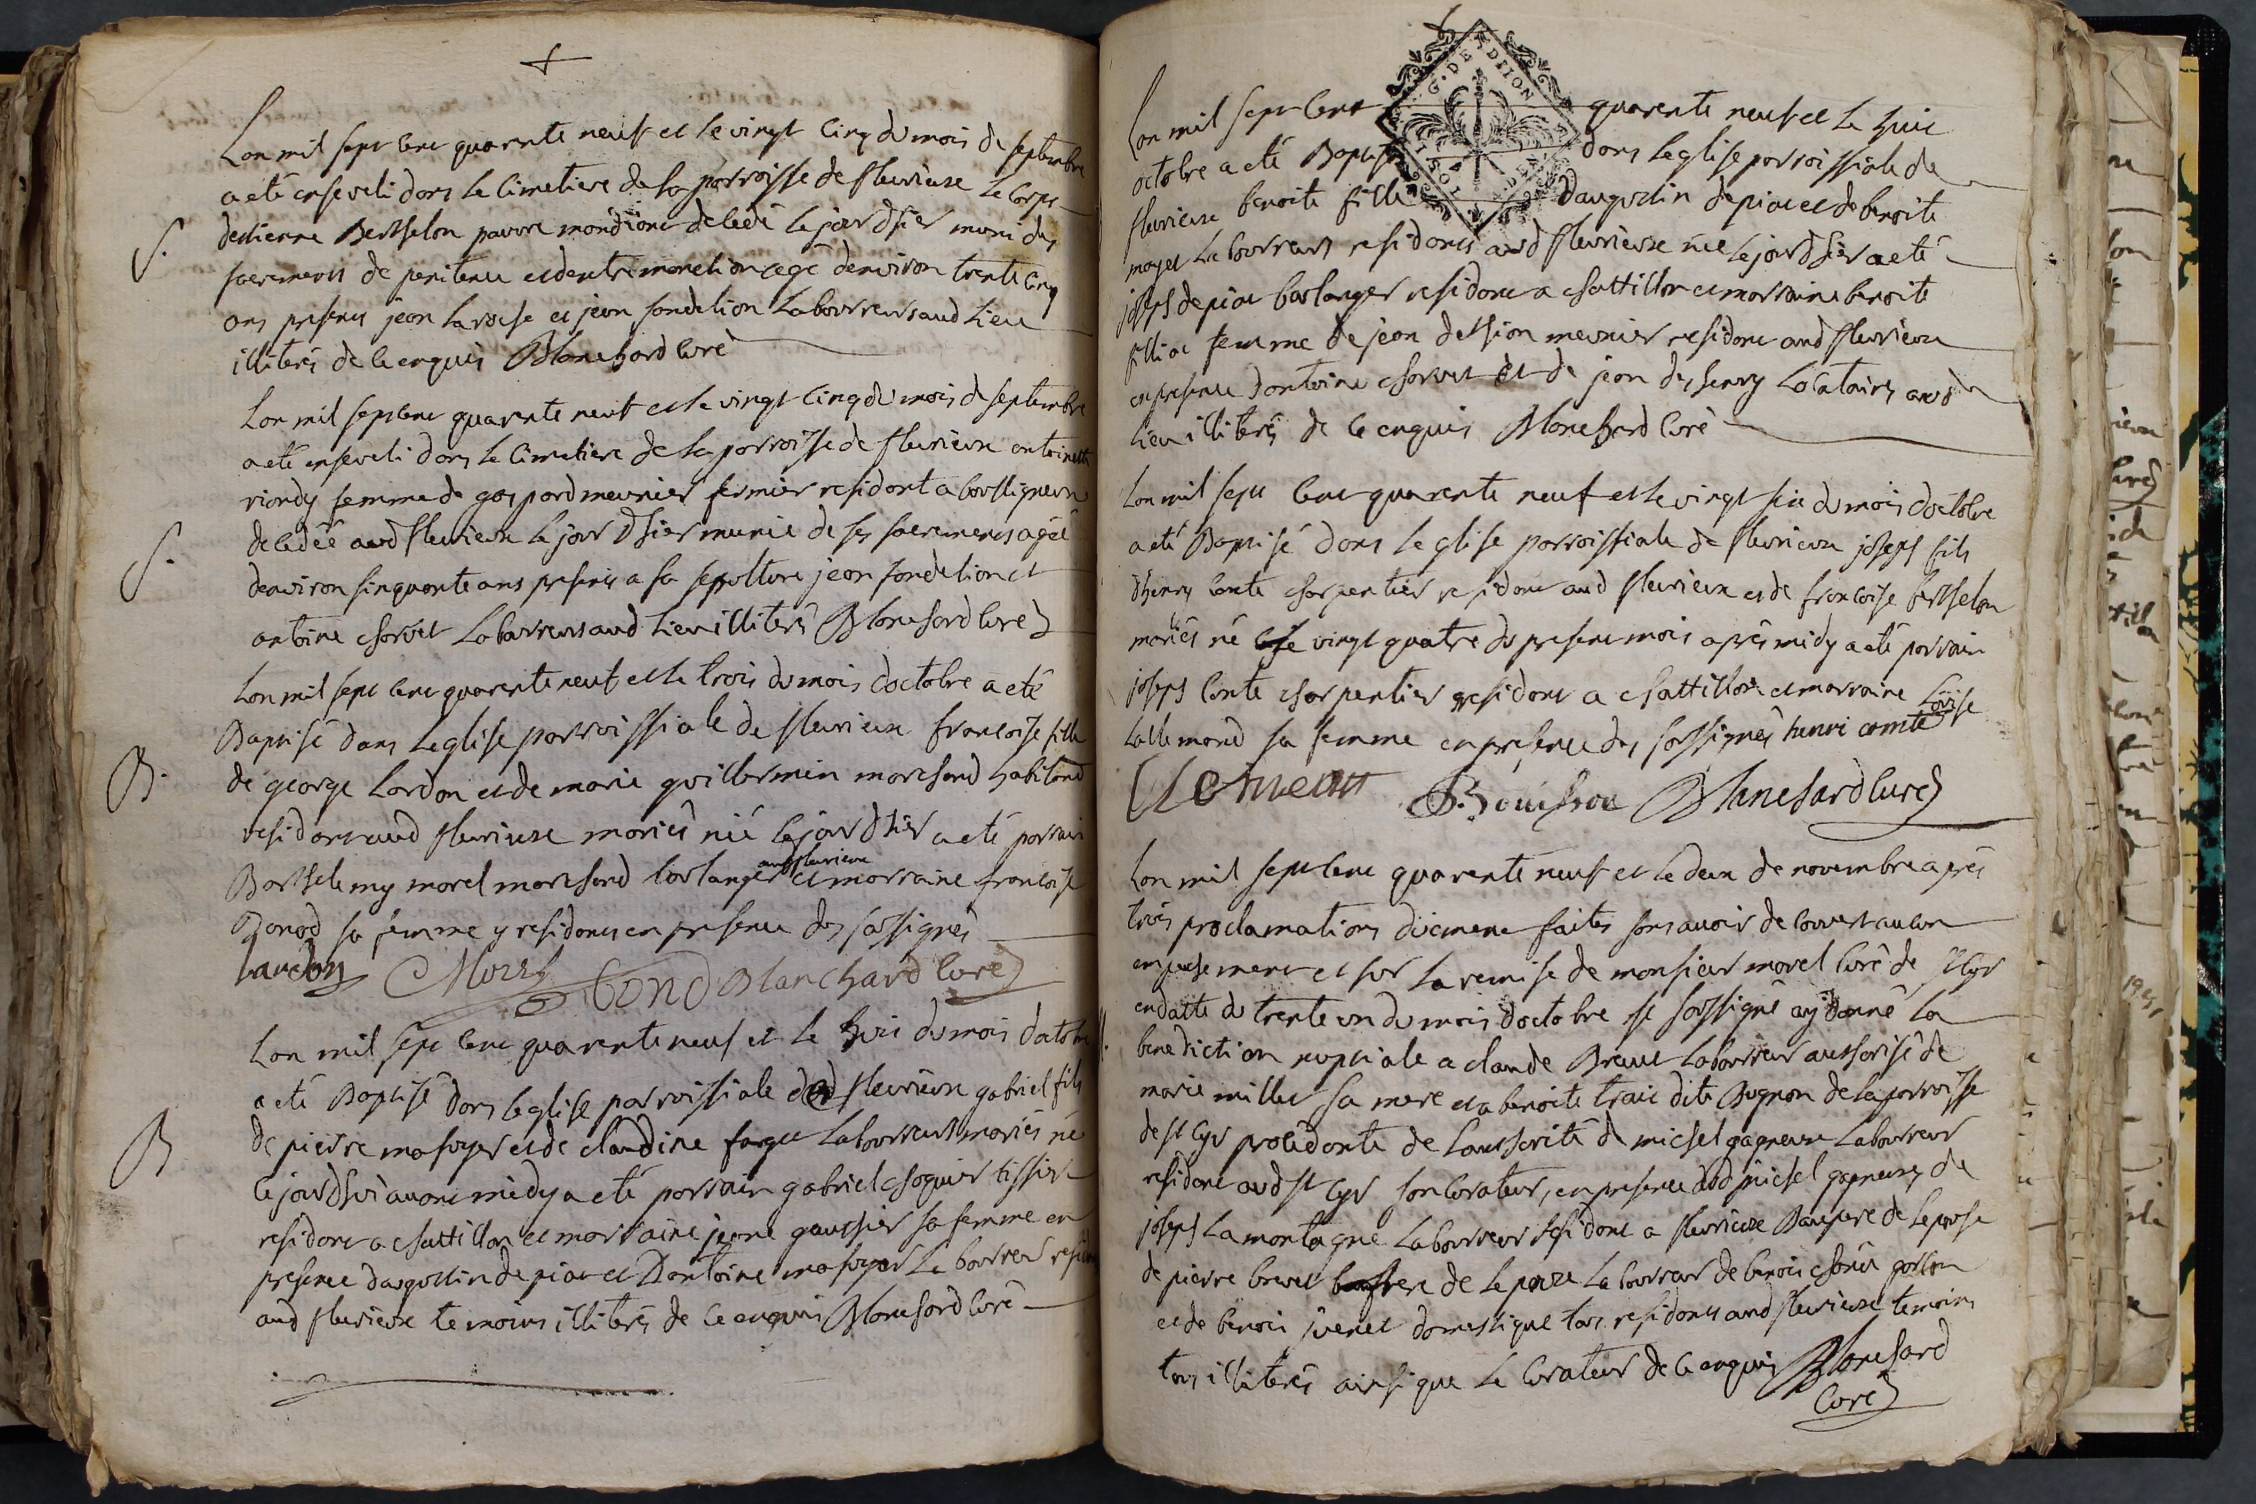 Lan mil sept cent quarente neuf et le vingt cinq du mois de septembre
a eté enseveli dans le cimetiere de la parroisse de fleurieux le corps
destienne Berthelon pauvre mondiant decedé le jour dhier muni des
S.
sacrements de penitence et dextremonction agé denviron trente cinq
ans presents jean laroche et jean fondelion laboureurs aud lieu
illiterés de ce enquis Blanchard curé
Lan mil sept cent quarente neuf et le vingt cinq du mois de septembre
a eté enseveli dans le cimetiere de la parroisse de fleurieux antoinette
riondy femme de gaspard meunier fermier residant a bouslligneux
S.
decedée aud fleurieux le jour dhier munie de ses sacrements agée
denviron sinquante ans presents a sa sepulture jean fondelion et
antoine charvet laboureurs aud lieu illiterés Blanchard curé
Lan mil sept cent quarente neuf et le trois du mois doctobre a eté
Baptisé dans leglise parroissiale de fleurieux francoise fille
B.
de george lardon et de marie guillermin marchand habitand
residants aud fleurieux mariés née le jour dhier a eté parrain
aud fleurieux
Barthelemy morel marchand boulanger et marraine francoise
Bonod sa femme y residants en presence des soussignés
lardon Morel Bonod Blanchard curé
Lan mil sept cent quarente neuf et le huit du mois doctobre
a eté Baptisé dans leglise parroissiale de fleurieux gabriel fils
B
de pierre mahuyer et de claudine farge laboureurs mariés né
cejourdhui avant midy a eté parrain gabriel choquier tissier
residant a chattillon et marraine jeanne gauthier sa femme en
presence daugustin depiat et Dantoine mahuyer laboureur
aud fleurieux temoins illiterés de ce enquis Blanchard curé
G. DE DIION
Lan mil sept cent quarente neuf et le huit
octobre a eté Baptisé dans leglise parroissiale de
fleurieux benoite fille daugustin depiat et de benoite
mayet laboureurs residants aud fleurieux née le jour dhier a eté
joseph depiat boulanger residant a chattillon et marraine benoite
filliat femme de jean dethion meunier residant aud fleurieux
en presence dantoine charvet et de jean deshenry locataires aud
lieu illiterés de ce enquis Blanchard curé
Lan mil sept cent quarente neuf et le vingt six du mois doctobre
a eté Baptisé dans leglise parroissiale de fleurieux joseph fils
dhenry comte charpentier residant aud fleurieux et de francoise berthelon
mariés né le vingt quatre du present mois aprés midy a eté parrain
joseph comte charpentier residant a chattillon et marraine Loüise
lallemand sa femme en presence des soussignés henri comte
Clement Bouchou Blanchard curé
Lan mil sept cent quarente neuf et le deux de novembre aprés
trois proclamations düement faites sans avoir decouvert aucun
empechement et sur la remise de monsieur morel curé de st Cyr
en datte du trente un du mois doctobre je soussigné ay donné la
benediction nuptiale a claude Brevet laboureur authorisé de
marie millet sa mere et a benoite trait dite Bugnon de la parroisse
de st Cyr procedante de lauthorité de michel gagneux laboureur
residant aud st Cyr son curateur, en presence dud michel gagneux, de
joseph lamontagne laboureur residant a fleurieux Beaupere de lepouse
de pierre brevet frere de lepoux laboureur de benoit
et de benoit juenet domestique tous residants aud fleurieux temoins
tous illiterés ainsi que le curateur de ce enquis Blanchard
Curé